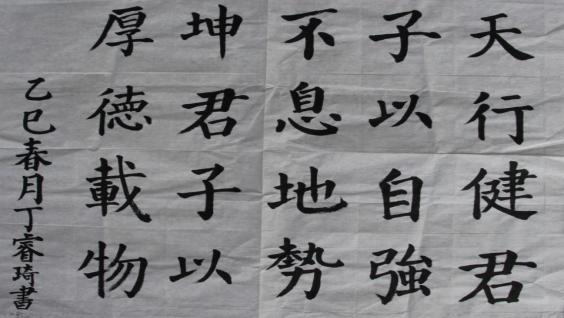 天行健君
子以自強
不息地勢
坤君子以
厚德載物
乙巳春月丁睿琦書